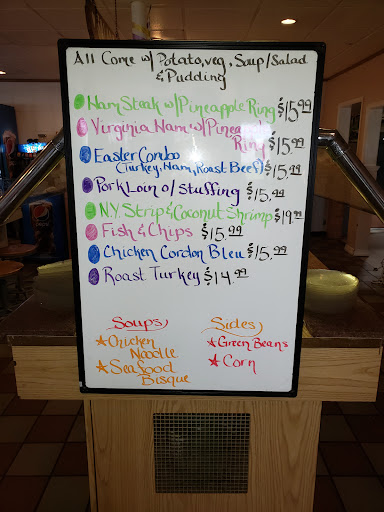 All Come w/ Potato, veg, Soup/Salad
& Pudding
Ham Steak w/ Pineapple Ring $15.99
Virginia Ham w/ Pineapple
Ring $15.99
Easter Combo
(Turkey, Ham, Roast Beef) $15.99
Pork Loin o/ Stuffing $15.99
N.Y. Strip & Coconut Shrimp $19.99
Fish & Chips $15.99
Chicken Cordon Bleu $15.99
Roast Turkey $14.99
Soups
Chicken
Noodle
Seafood
Bisque
Sides
Green Beans
Corn
pepsi